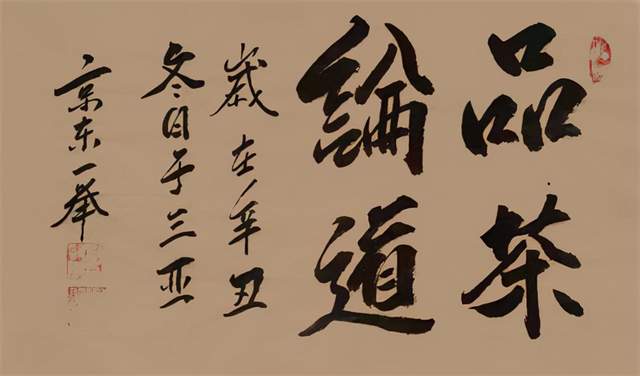 品茶
論道
歲在辛丑
冬日于三亚
京东一举